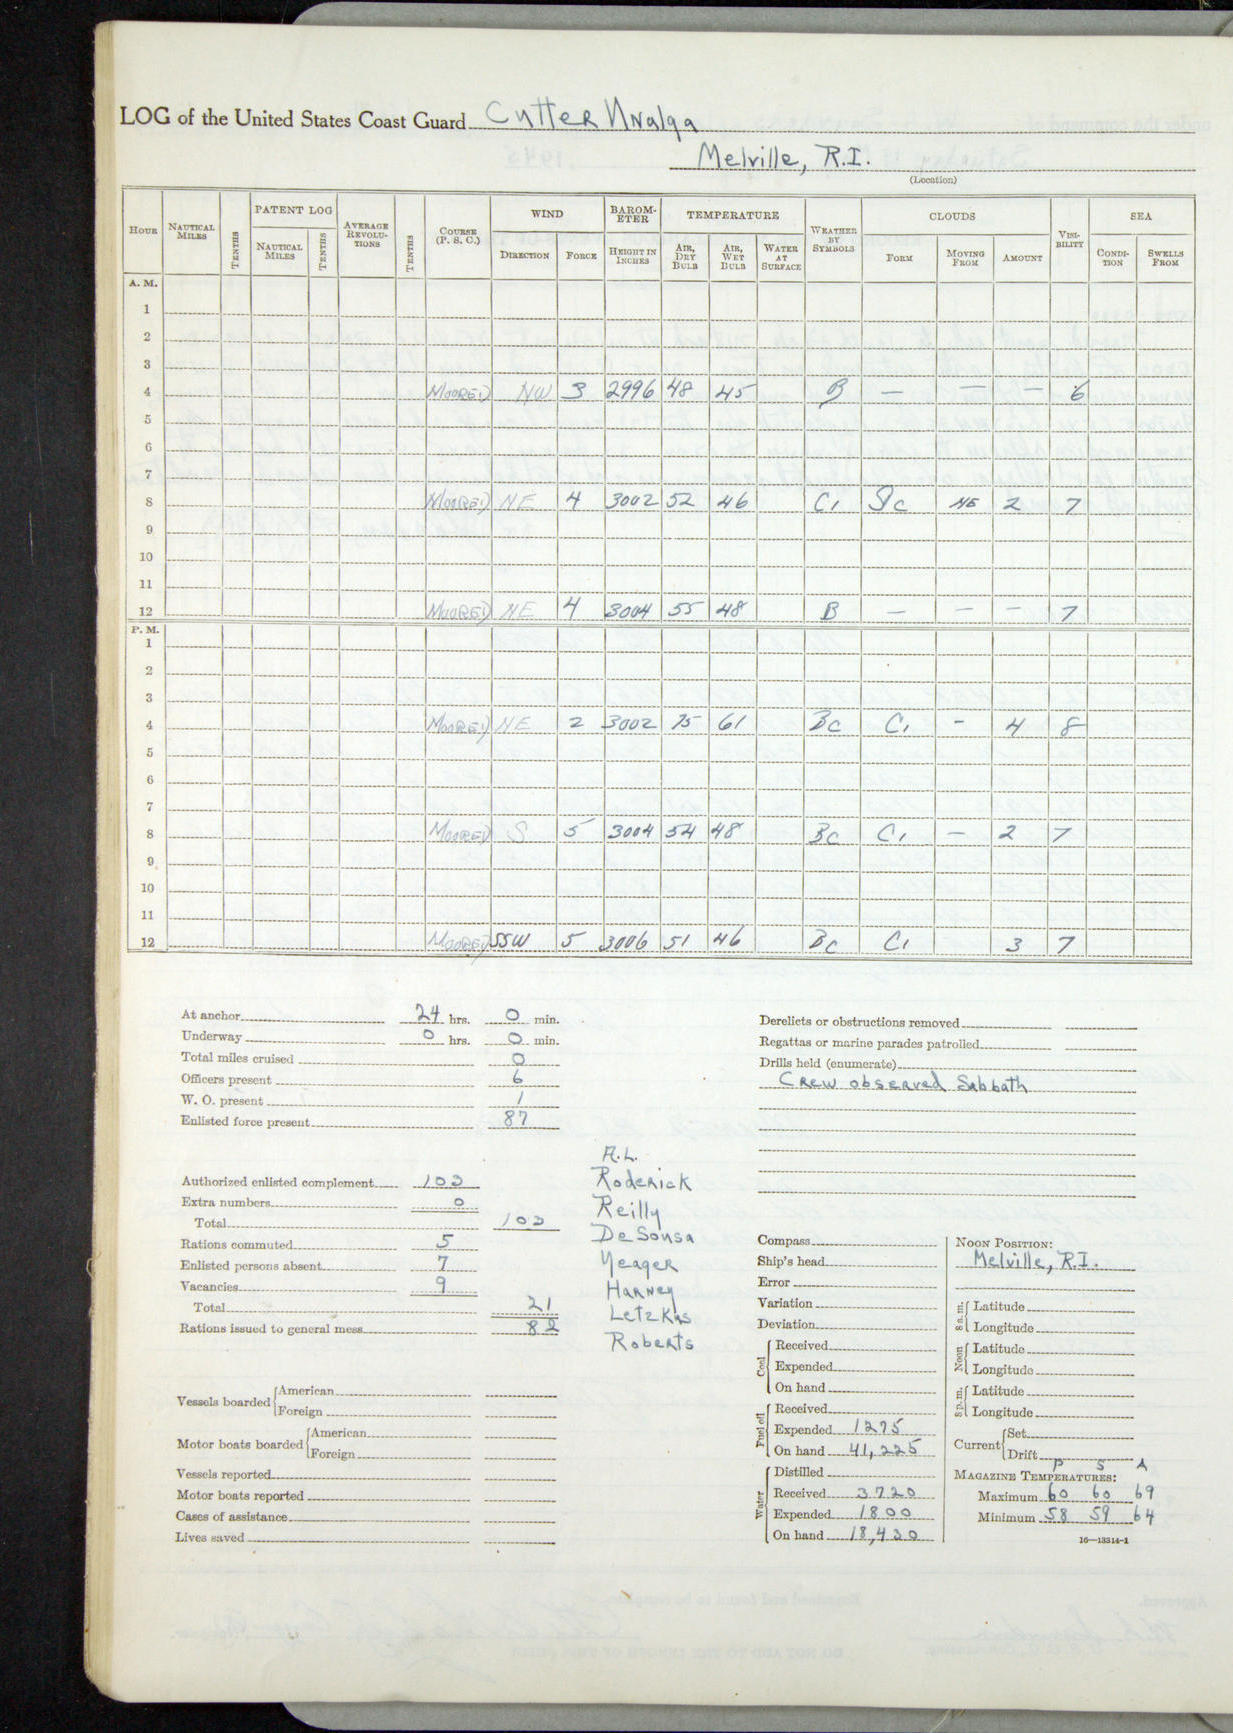 LOG of the United States Coast Guard Cutter Unalga
Melville, R.I.
(Location)
HOUR NAUTICAL MILES TENTHS PATENT LOG NAUTICAL MILES TENTHS AVERAGE REVOLU-TIONS TENTHS COURSE (P. S. C.) WIND DIRECTION FORCE BAROM-ETER HEIGHT IN INCHES TEMPERATURE AIR, DRY BULB AIR, WET BULB WATER AT SURFACE WEATHER BY SYMBOLS CLOUDS FORM MOVING FROM AMOUNT VISI-BILITY SEA CONDI-TION SWELLS FROM
A. M.
1
2
3
4 MOORED NW 3 2996 48 45 B — — — 6
5
6
7
8 MOORED NE 4 3002 52 46 Ci Sc NE 2 7
9
10
11
12 MOORED NE 4 3004 55 48 B — — — 7
P. M.
1
2
3
4 MOORED NE 2 3002 75 61 Bc Ci - 4 8
5
6
7
8 MOORED S 5 3004 54 48 Bc Ci — 2 7
9
10
11
12 MOORED SSW 5 3006 51 46 Bc Ci 3 7
At anchor 24 hrs. 0 min.
Underway 0 hrs. 0 min.
Total miles cruised 0
Officers present 6
W. O. present 1
Enlisted force present 87
Derelicts or obstructions removed
Regattas or marine parades patrolled
Drills held (enumerate)
Crew observed Sabbath
A.L.
Roderick
Reilly
DeSousa
Yeager
Harney
Letzkus
Roberts
Authorized enlisted complement 103
Extra numbers 0
Total 103
Rations commuted 5
Enlisted persons absent 7
Vacancies 9
Total 21
Rations issued to general mess 82
Vessels boarded American
Foreign
Motor boats boarded American
Foreign
Vessels reported
Motor boats reported
Cases of assistance
Lives saved
Compass
Ship's head
Error
Variation
Deviation
Coal Received
Expended
On hand
Fuel oil Received
Expended 1275
On hand 41,225
Water Distilled
Received 3720
Expended 1800
On hand 18,430
NOON POSITION:
Melville, R.I.
8 a.m. Latitude
Longitude
Noon Latitude
Longitude
8 p.m. Latitude
Longitude
Current Set
Drift
P S A
MAGAZINE TEMPERATURES:
Maximum 60 60 69
Minimum 58 59 64
16—13314-1